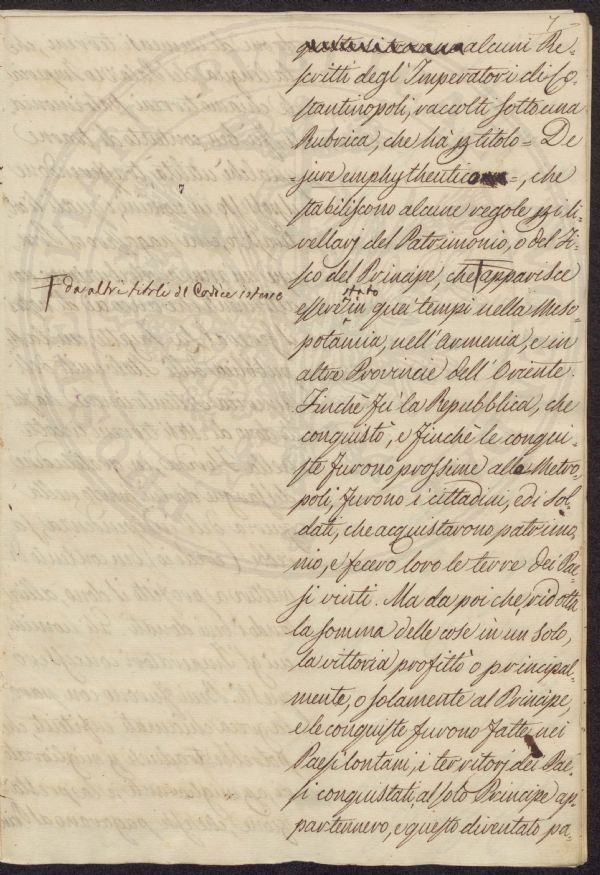 7
alcuni Re-
scritti degl'Imperatori di Co-
stantinopoli, raccolti sotto una
Rubrica, che hà p titolo = De
jure emphytheutico =, che
stabiliscono alcune regole p i li-
vellarj del Patrimonio, o del Fi-
sco del Principe, che apparisce
Ŧ da altri titoli del Codice istesso
stato
essere in quei tempi nella Meso-
potamia, nell'Armenia, e in
altre Provincie dell'Oriente.
Finchè fù la Repubblica, che
conquistò, e finchè le conqui-
ste furono prossime alla Metro-
poli, furono i cittadini, ed i sol-
dati, che acquistavono patrimo-
nio, e fecero loro le terre dei Pae-
si vinti. Ma da poi che ridotta
la somma delle cose in un solo,
la vittoria profittò o principal-
mente, o solamente al Principe,
e le conquiste furono fatte nei
Paesi lontani, i territorj dei Pae-
si conquistati, al solo Principe ap-
partennero, e questo diventato pa-